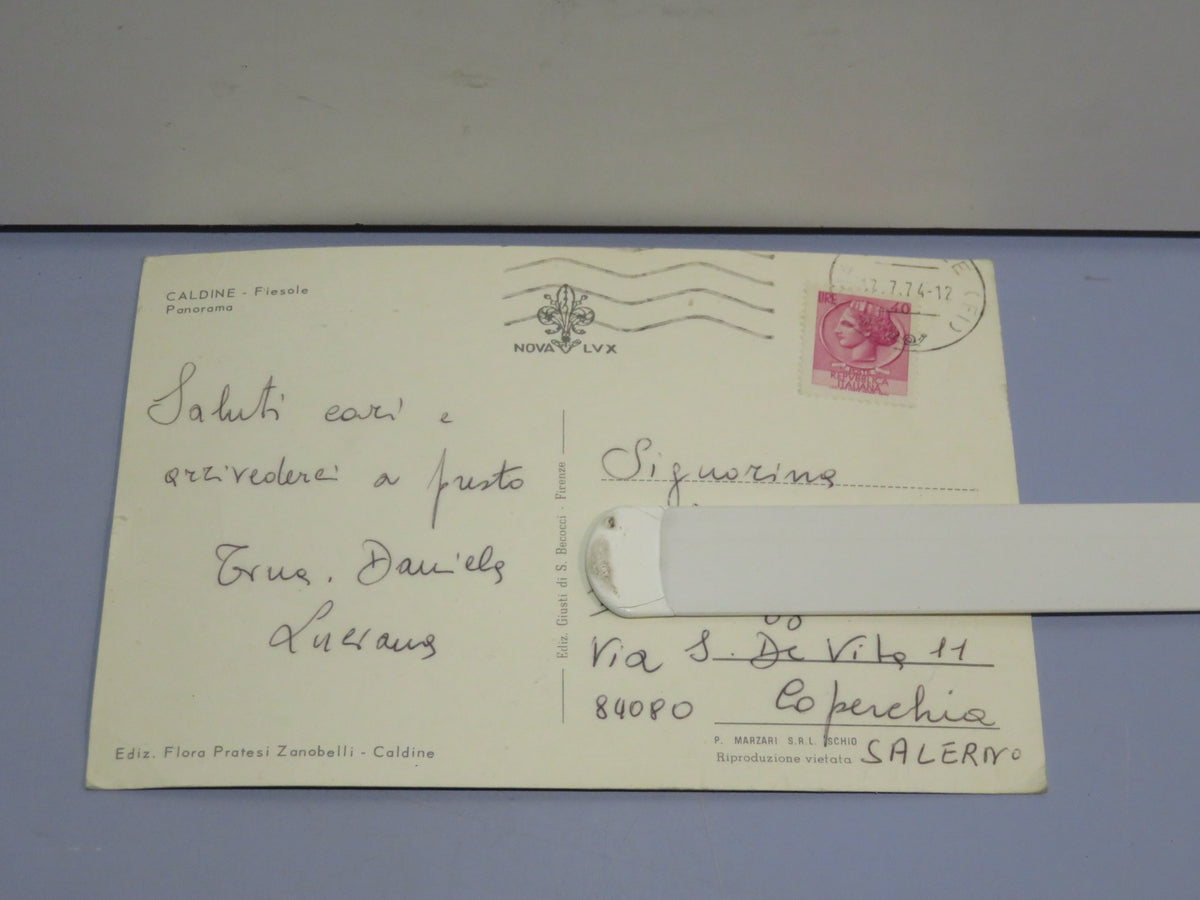 CALDINE - Fiesole
Panorama
NOVA LVX
3.7.74-12
LIRE 40
POSTE
REPVBBLICA
ITALIANA
Saluti cari e
arrivederci a presto
Daniela
Luciana
Ediz. Giusti di S. Becocci - Firenze
Signorina
Via S. De Vita 11
84080 Coperchia
SALERNO
P. MARZARI S.R.L. SCHIO
Riproduzione vietata
Ediz. Flora Pratesi Zanobelli - Caldine